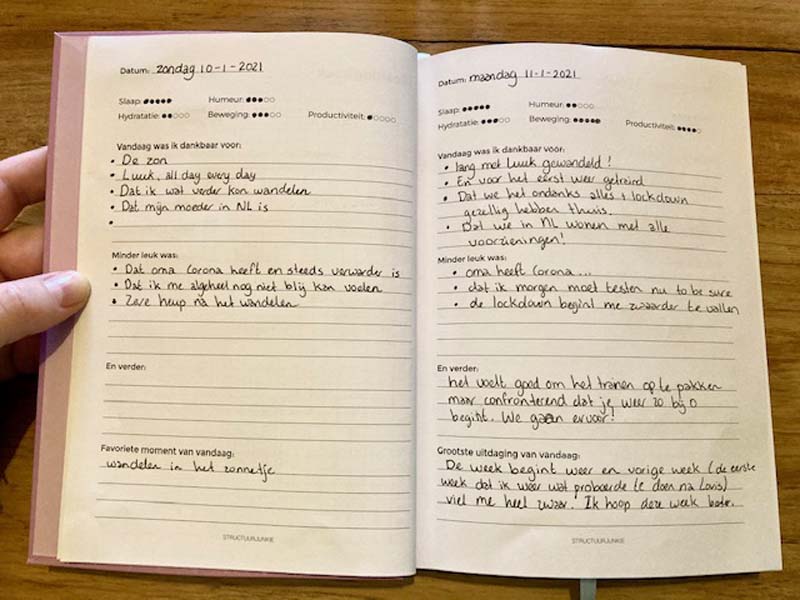 Datum: zondag 10-1-2021
Slaap: ●●●●● Humeur: ●●●○○
Hydratatie: ●●○○○ Beweging: ●●●○○ Productiviteit: ●○○○○
Vandaag was ik dankbaar voor:
• De zon
• Luuk, all day every day
• Dat ik wat verder kon wandelen
• Dat mijn moeder in NL is
•
Minder leuk was:
• Dat oma Corona heeft en steeds verwarder is
• Dat ik me algeheel nog niet blij kan voelen
• Zere heup na het wandelen
En verder:
Favoriete moment van vandaag:
wandelen in het zonnetje
STRUCTUURJUNKIE
Datum: maandag 11-1-2021
Slaap: ●●●●● Humeur: ●●○○○
Hydratatie: ●●●○○ Beweging: ●●●●● Productiviteit: ●●●●○
Vandaag was ik dankbaar voor:
• lang met Luuk gewandeld!
• En voor het eerst weer getraind
• Dat we het ondanks alles + lockdown
gezellig hebben thuis.
• Dat we in NL wonen met alle
voorzieningen!
Minder leuk was:
• oma heeft Corona...
• dat ik morgen moet testen nu to be sure
• de lockdown begint me zwaarder te vallen
En verder:
het voelt goed om het trainen op te pakken
maar confronterend dat je weer zo bij 0
begint. We gaan ervoor!
Grootste uitdaging van vandaag:
De week begint weer en vorige week (de eerste
week dat ik weer wat probeerde te doen na Lovis)
viel me heel zwaar. Ik hoop deze week beter.
STRUCTUURJUNKIE